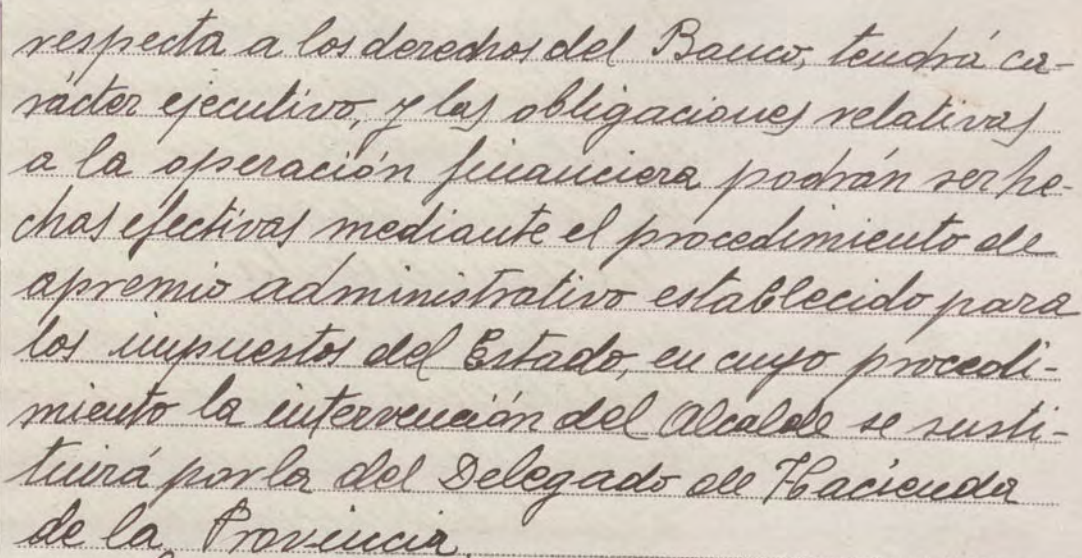 respecta a los derechos del Banco, tendrá ca-
rácter ejecutivo, y las obligaciones relativas
a la operación financiera podrán ser he-
chas efectivas mediante el procedimiento de
apremio administrativo establecido para
los impuestos del Estado, en cuyo procedi-
miento la intervención del Alcalde se susti-
tuirá por la del Delegado de Hacienda
de la Provincia.